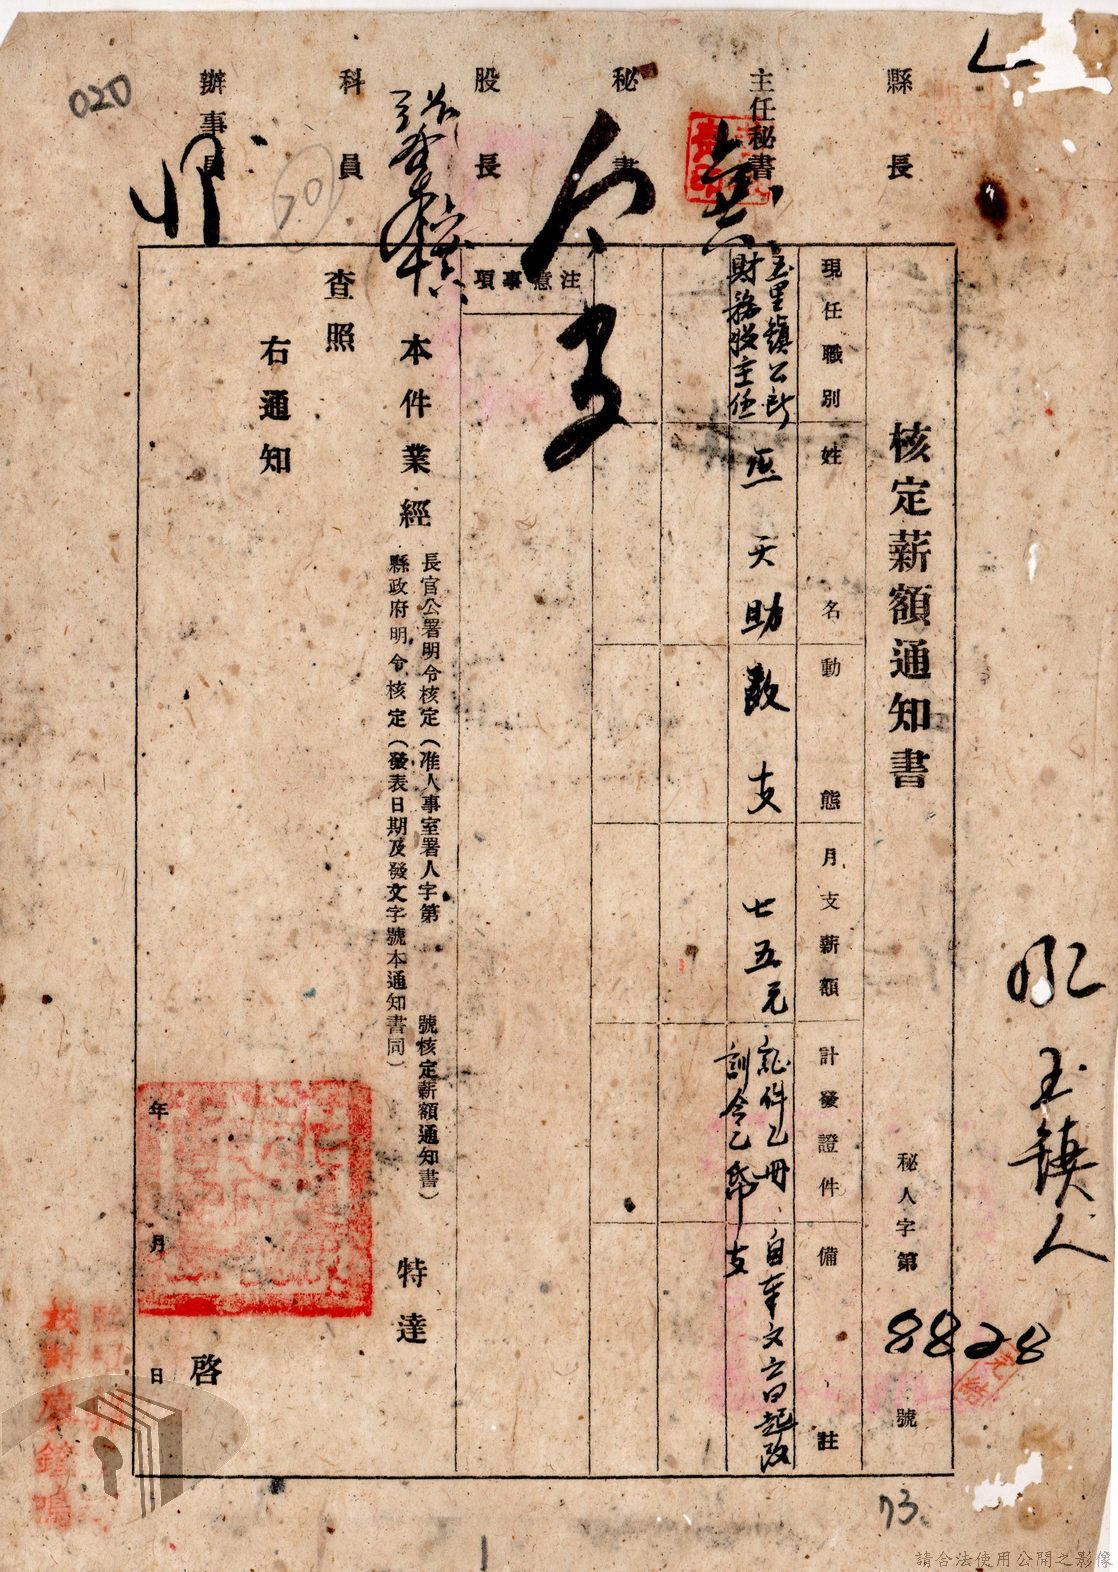 縣長
主任秘書
秘書
股長
科員
辦事員
020
70
核定薪額通知書
秘人字第 8828 號
現任職別
姓名
動態
月支薪額
計發證件
備註
玉里鎮公所
財務股主任
天助
改支
七五元
証件乙冊
訓令乙帋
自奉文之日起改
支
注意事項
本件業經
長官公署明令核定(准人事室署人字第 號核定薪額通知書)
縣政府明令核定(發表日期及發文字號本通知書同)
特達
查照
右通知
啓
年 月 日
玉鎮人
73.
校對
請合法使用公開之影像